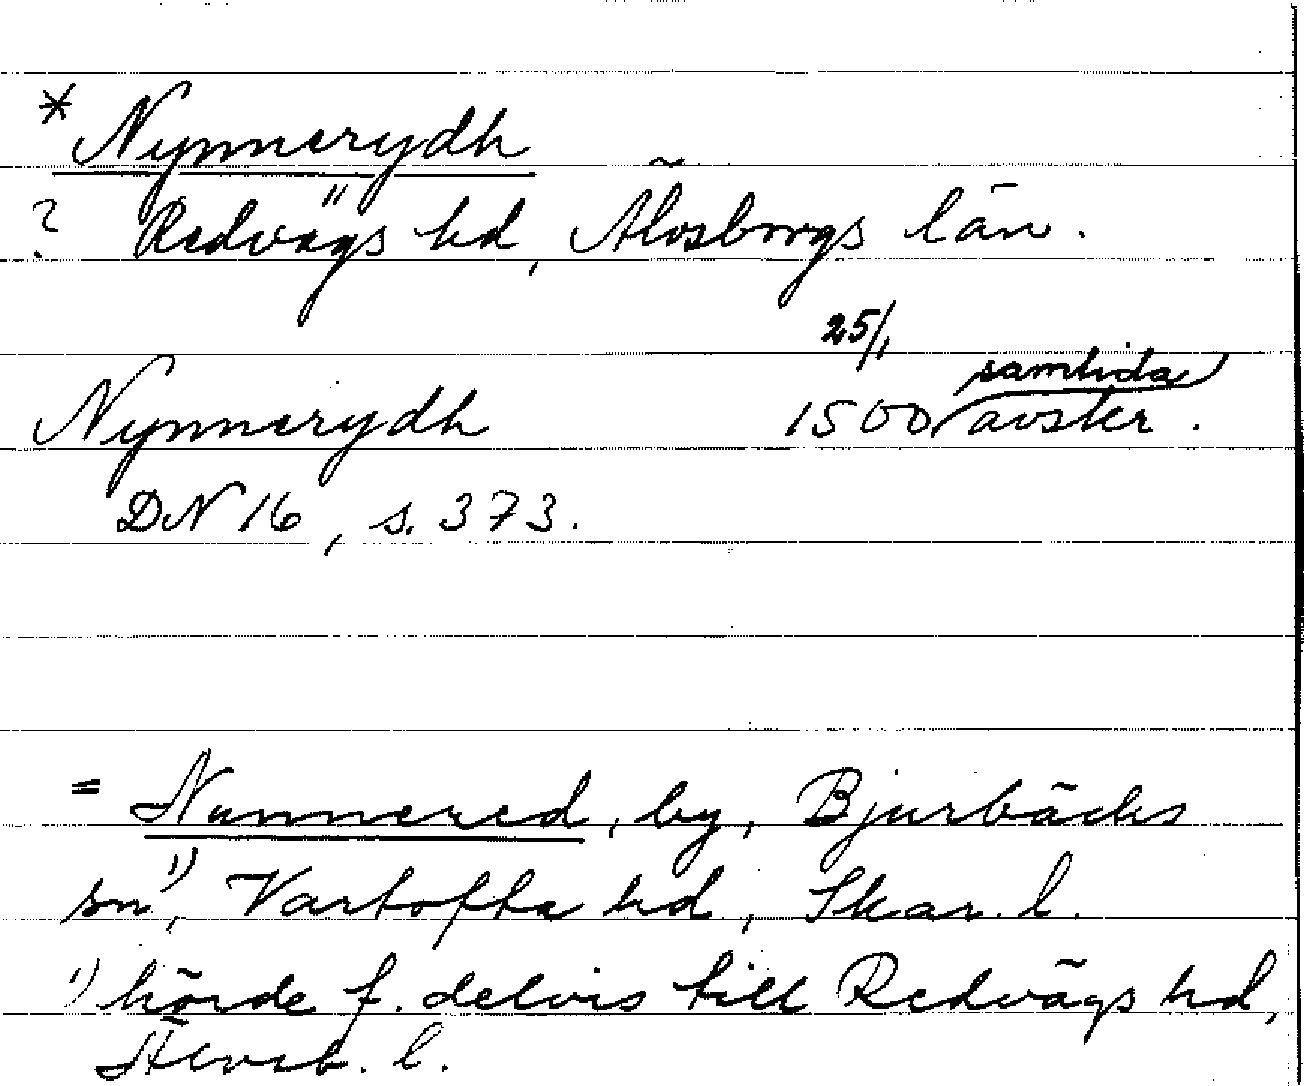 * Nynnerydh
? Redvägs hd, Älvsborgs län.
25/1
samtida
Nynnerydh 1500 avskr.
DN 16, s. 373.
= Nunnered, by, Bjurbäcks
sn 1), Vartofta hd, Skar. l.
1) hörde f. delvis till Redvägs hd,
Älvsb. l.